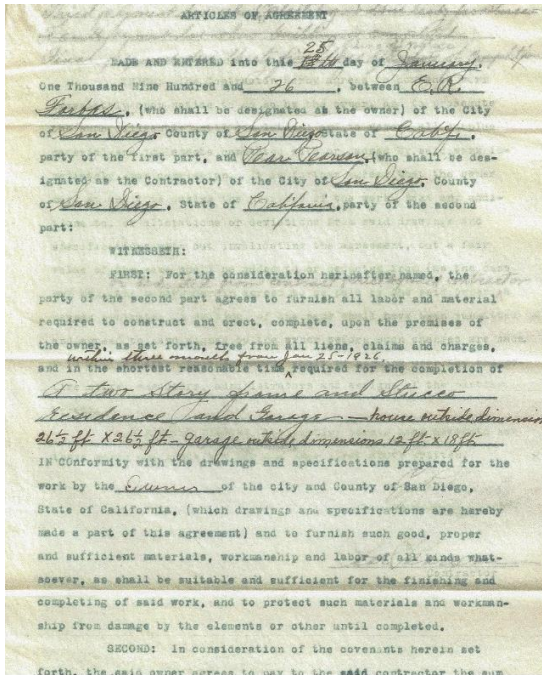 ARTICLES OF AGREEMENT
MADE AND ENTERED into this 25 day of January,
One Thousand Nine Hundred and 26, between E. R.
Forbes, (who shall be designated as the owner) of the City
of San Diego County of San Diego State of Calif,
party of the first part, and Pear Pearson (who shall be des-
ignated as the Contractor) of the City of San Diego, County
of San Diego, State of California, party of the second
part:
WITNESSETH:
FIRST: For the consideration herinafter named, the
party of the second part agrees to furnish all labor and material
required to construct and erect, complete, upon the premises of
the owner, as set forth, free from all liens, claims and charges,
within three months from Jan 25-1926,
and in the shortest reasonable time required for the completion of
A two story frame and Stucco
residence and Garage - house outside dimension
26½ ft X 26½ ft - garage outside dimensions 12 ft x 18 ft
IN COnformity with the drawings and specifications prepared for the
work by the owner of the city and County of San Diego,
State of California, (which drawings and specifications are hereby
made a part of this agreement) and to furnish such good, proper
and sufficient materials, workmanship and labor of all kinds what-
soever, as shall be suitable and sufficient for the finishing and
completing of said work, and to protect such materials and workman-
ship from damage by the elements or other until completed.
SECOND: In consideration of the covenants herein set
forth, the said owner agrees to pay to the said contractor the sum